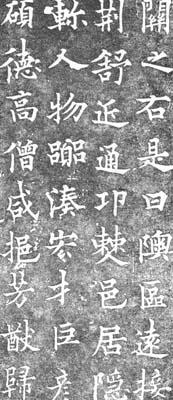 關之右是曰隩區遠接
荆舒近通卭僰邑居隱
軫人物嚻湊宏才巨彦
碩德高僧咸挹芳猷歸